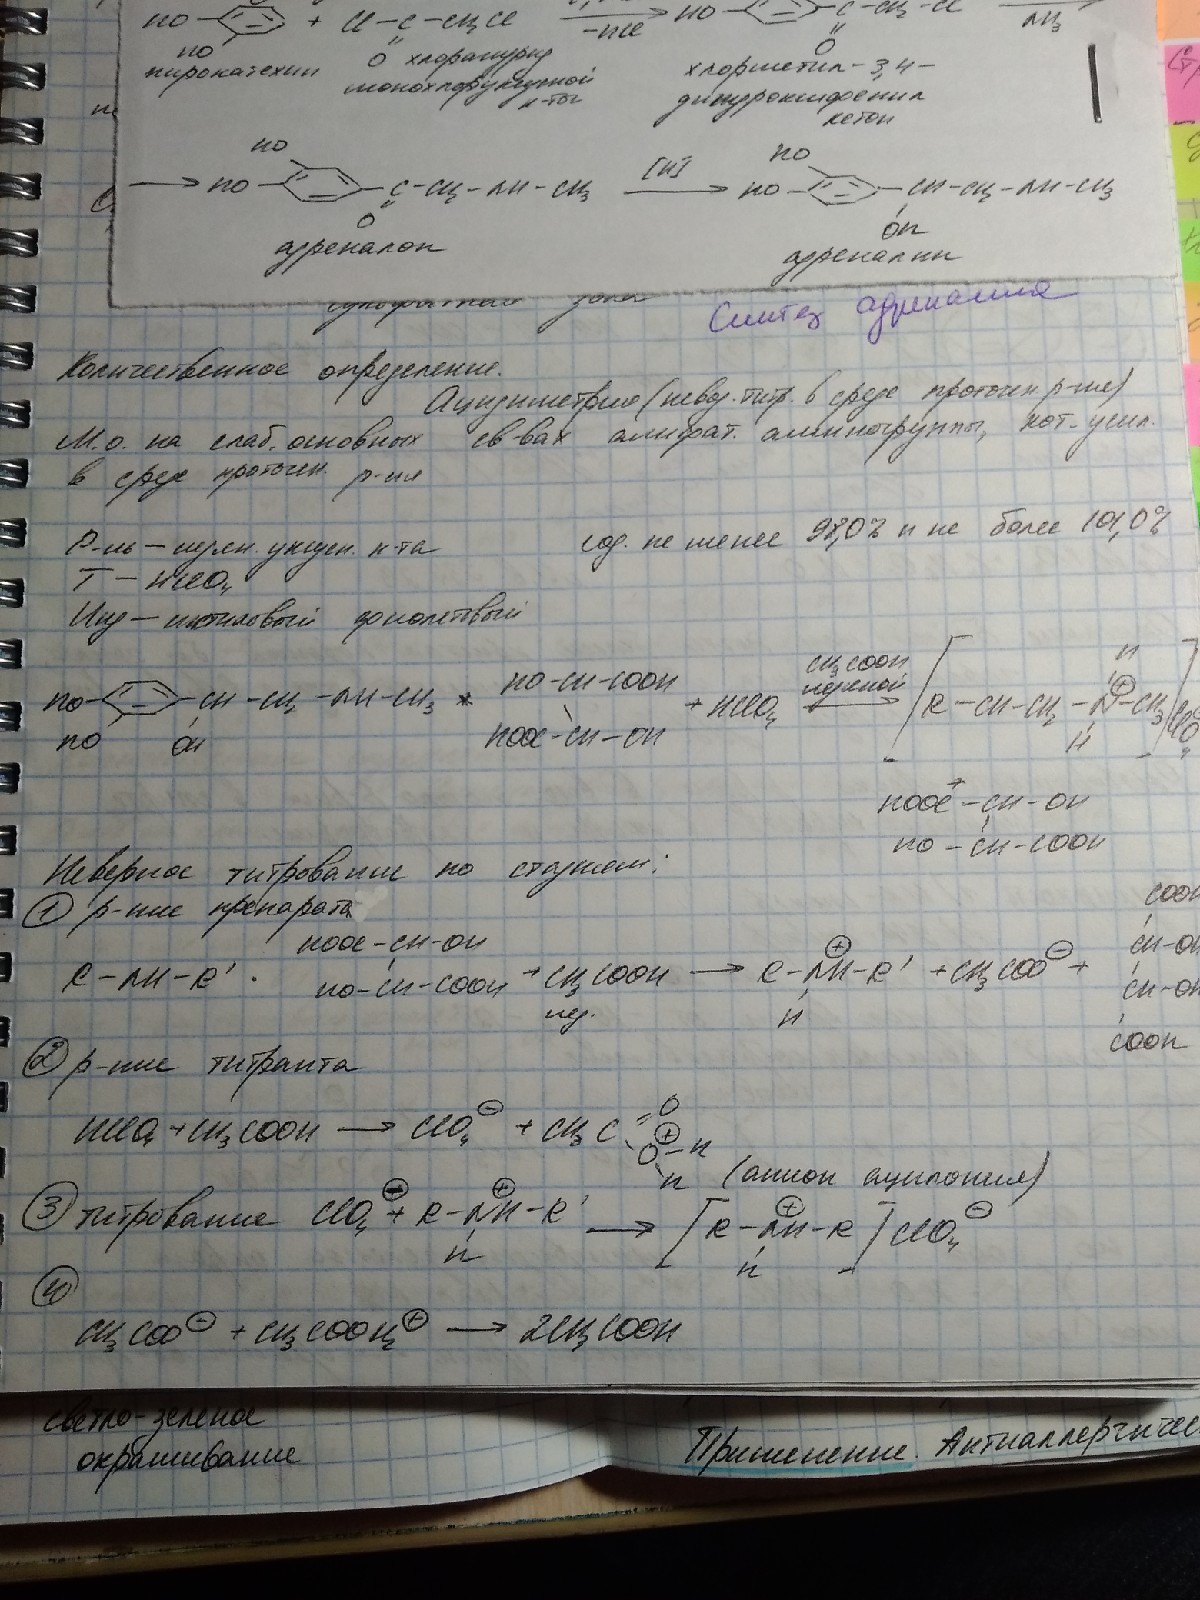 HO + Cl-C-CH₂Cl -HCl HO C-CH₂-Cl
HO O O
пирокатехин хлорангидрид хлорметил-3,4-
монохлоруксусной дигидроксифенил
к-ты кетон
HO HO
HO C-CH₂-NH-CH₃ [H] HO CH-CH₂-NH-CH₃
O OH
адреналон адреналин
Синтез адреналина
Количественное определение.
Ацидиметрия (невод. титр. в среде протоген. р-ля)
М.о. на слаб. основных св-вах алифат. аминогруппы, кот. усил.
в среде протоген. р-ля
Р-ль – ледян. уксусн. к-та сод. не менее 98,0% и не более 101,0%
Т – HClO₄
Инд – фиолетовый
HO CH-CH₂-NH-CH₃ * HO-CH-COOH + HClO₄ CH₃COOH ледяной [R-CH-CH₂-N⊕-CH₃] ClO₄⊖
HO OH HOOC-CH-OH H H
HOOC-CH-OH
HO-CH-COOH
Неводное титрование по стадиям:
① р-ние препарата
HOOC-CH-OH
R-NH-R' · HO-CH-COOH + CH₃COOH → R-NH⊕-R' + CH₃COO⊖ +
лед. H
COOH
CH-OH
CH-OH
COOH
② р-ние титранта
HClO₄ + CH₃COOH → ClO₄⊖ + CH₃C O O⊕-H H
(анион ацилония)
③ титрование ClO₄⊖ + R-NH⊕-R' → [R-NH⊕-R] ClO₄⊖
H H
④
CH₃COO⊖ + CH₃COOH₂⊕ → 2CH₃COOH
светло-зеленое
окрашивание
Применение. Антиаллергичес